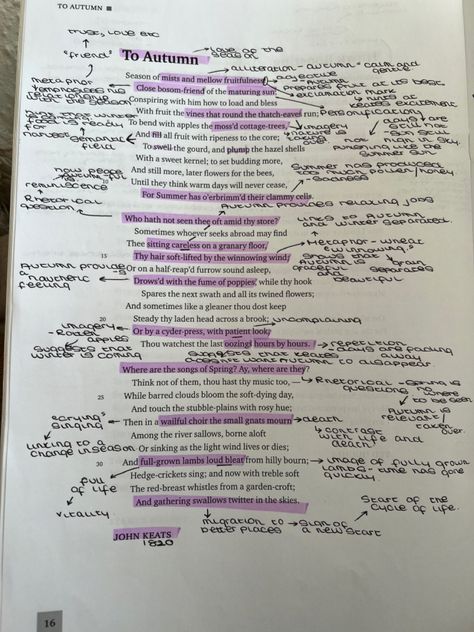 TO AUTUMN
trust, love etc
"friend"
To Autumn
love of the season
alliteration - autumn calm and gentle.
Season of mists and mellow fruitfulness!
adjective
Close bosom-friend of the maturing sun;
- Autumn prepares fruit at its best
exclamation mark
Keats excitement
metaphor
Conspiring with him how to load and bless
With fruit the vines that round the thatch-eaves run;
Personification
To bend with apples the moss'd cottage-trees,
imagery
nature
And fill all fruit with ripeness to the core;
To swell the gourd, and plump the hazel shells
semantic field
With a sweet kernel; to set budding more,
And still more, later flowers for the bees,
Summer has produced too much pollen/honey.
Until they think warm days will never cease,
reminiscence
For Summer has o'erbrimm'd their clammy cells.
Rhetorical question
Autumn provides relaxing jobs
Who hath not seen thee oft amid thy store?
links to Autumn and winter separated.
Sometimes whoever seeks abroad may find
Thee sitting careless on a granary floor,
Metaphor - wheat "winnowing"
15
Thy hair soft-lifted by the winnowing wind;
shows that Autumn is graceful and beautiful
separates grain
Or on a half-reap'd furrow sound asleep,
Drows'd with the fume of poppies, while thy hook
feeling
Spares the next swath and all its twined flowers;
And sometimes like a gleaner thou dost keep
20
Steady thy laden head across a brook;
uncomplaining
imagery
apples
Or by a cyder-press, with patient look,
Thou watchest the last oozings hours by hours.
repetition
days are fading away
suggests that winter is coming
suggests that Keats doesn't want Autumn to disappear.
Where are the songs of Spring? Ay, where are they?
Think not of them, thou hast thy music too, —
Rhetorical questions
- Spring is nowhere to be seen
25
While barred clouds bloom the soft-dying day,
And touch the stubble-plains with rosy hue;
Autumn is relevant/taken over.
"crying"
singing
Then in a wailful choir the small gnats mourn
death
Among the river sallows, borne aloft
contrast with life and death
linking to a change in season
Or sinking as the light wind lives or dies;
30
And full-grown lambs loud bleat from hilly bourn;
image of fully grown lambs - time has gone quickly.
Hedge-crickets sing; and now with treble soft
full of life
The red-breast whistles from a garden-croft;
And gathering swallows twitter in the skies.
vitality
migration to better places
sign of a new start
Start of the cycle of life.
JOHN KEATS
1820
16